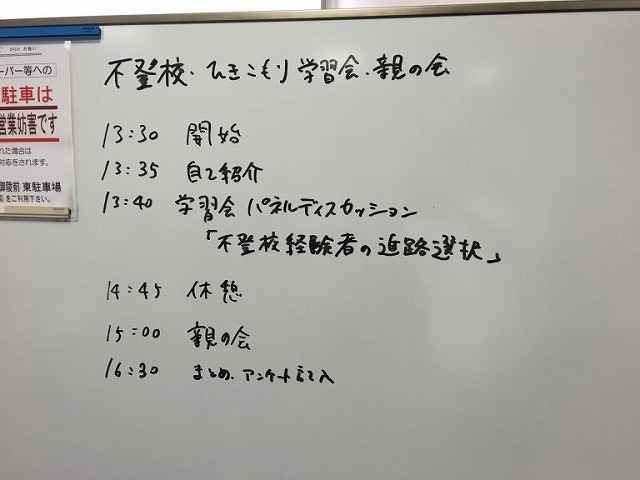 からのお願い
ーパー等への
駐車は
営業妨害です
れた場合は
対応をされます。
御陵前 東駐車場
をご利用下さい。
不登校・ひきこもり学習会・親の会
13:30 開始
13:35 自己紹介
13:40 学習会 パネルディスカッション
「不登校経験者の進路選択」
14:45 休憩
15:00 親の会
16:30 まとめ、アンケート記入